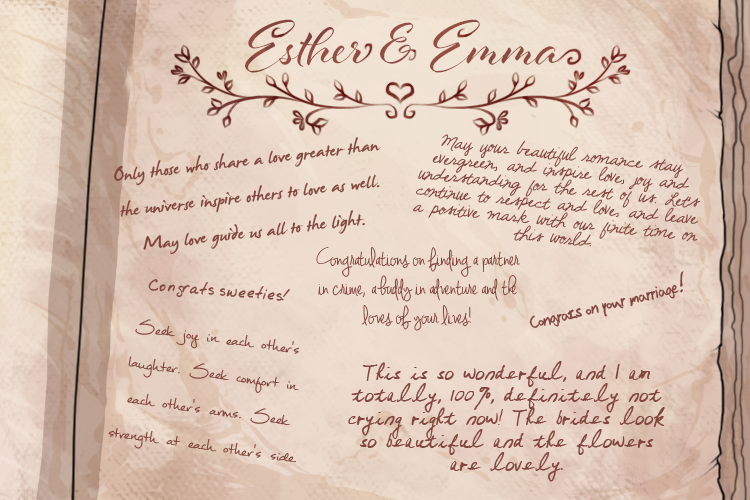 Esther & Emma
Only those who share a love greater than
the universe inspire others to love as well.
May love guide us all to the light.
May your beautiful romance stay
evergreen, and inspire love, joy and
understanding for the rest of us. Let's
continue to respect and love, and leave
a positive mark with our finite time on
this world.
Congratulations on finding a partner
in crime, a buddy in adventure and the
loves of your lives!
Congrats sweeties!
Congrats on your marriage!
Seek joy in each other's
laughter. Seek comfort in
each other's arms. Seek
strength at each other's side
This is so wonderful, and I am
totally, 100%, definitely not
crying right now! The brides look
so beautiful and the flowers
are lovely.